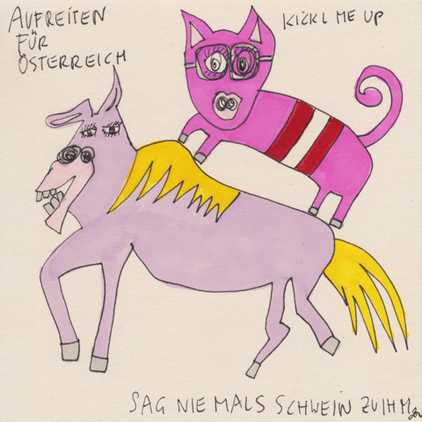 AUFREITEN
FÜR
ÖSTERREICH
KICKL ME UP
SAG NIEMALS SCHWEIN ZU IHM